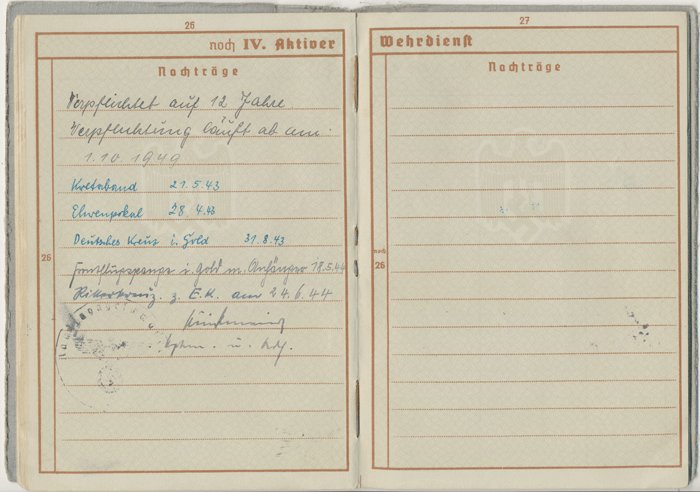 26
noch IV. Aktiver
Nachträge
Verpflichtet auf 12 Jahre
Verpflichtung läuft ab am:
1.10.1949
Kretaband 21.5.43
Ehrenpokal 28.4.43
Deutsches Kreuz i. Gold 31.8.43
Frontflugspange i. Gold m. Anhänger 18.5.44
Ritterkreuz. z. E.K. am 24.6.44
Hptm. u.
26
27
Wehrdienst
Nachträge
noch
26